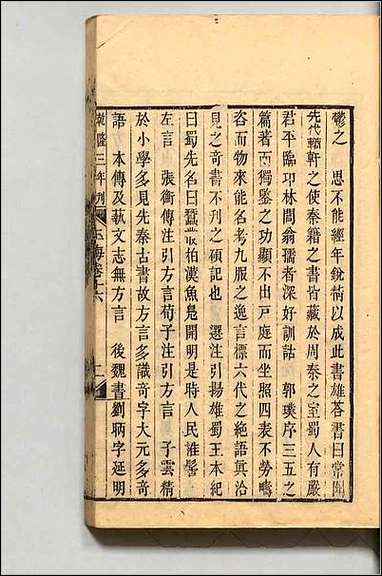 鬱之　思不能經年銳精以成此書雄荅書曰常聞
先代輶軒之使奏籍之書皆藏於周秦之室蜀人有嚴
君平臨卭林閭翁孺者深好訓詁　郭璞序三五之
篇著而獨鑒之功顯不出戶庭而坐照四表不勞疇
咨而物來能名考九服之逸言標六代之絶語真洽
見之奇書不刋之碩記也　選注引揚雄蜀王本紀
曰蜀先名曰蠶叢柏濩魚鳬開明是時人民椎髻
左言　張衡傳注引方言荀子注引方言　子雲精
於小學多見先秦古書故方言多識奇字大元多奇
語　本傳及蓺文志無方言　後魏書劉昞字延明
乾隆三年刋　玉海卷十六